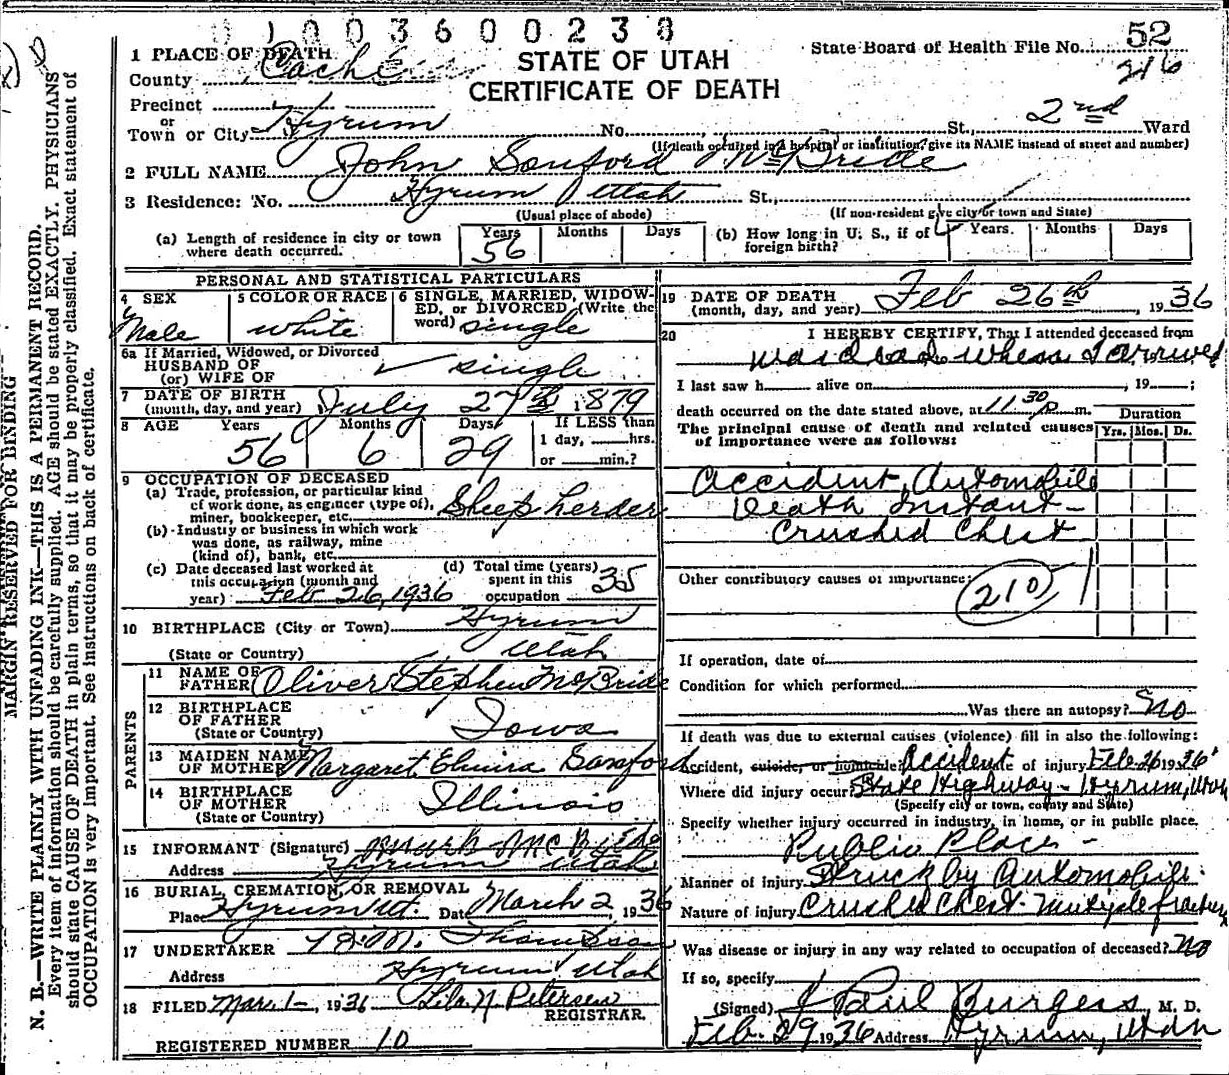 0 1 0 0 3 6 0 0 2 3 8
STATE OF UTAH
CERTIFICATE OF DEATH
State Board of Health File No. 52
216
1 PLACE OF DEATH
County Cache
Precinct
or
Town or City Hyrum No. St., 2nd Ward
(If death occurred in a hospital or institution, give its NAME instead of street and number)
2 FULL NAME John Sanford McBride
3 Residence: No. Hyrum Utah St.,
(Usual place of abode) (If non-resident give city or town and State)
(a) Length of residence in city or town where death occurred. Years 56 Months Days (b) How long in U. S., if of foreign birth? Years. Months Days
PERSONAL AND STATISTICAL PARTICULARS
4 SEX Male
5 COLOR OR RACE white
6 SINGLE, MARRIED, WIDOWED, or DIVORCED (Write the word) single
6a If Married, Widowed, or Divorced
HUSBAND OF
(or) WIFE OF single
7 DATE OF BIRTH
(month, day, and year) July 27th 1879
8 AGE Years 56 Months 6 Days 29 If LESS than 1 day, hrs. or min.?
9 OCCUPATION OF DECEASED
(a) Trade, profession, or particular kind of work done, as engineer (type of), miner, bookkeeper, etc. Sheep herder
(b) Industry or business in which work was done, as railway, mine (kind of), bank, etc.
(c) Date deceased last worked at this occupation (month and year) Feb 26, 1936
(d) Total time (years) spent in this occupation 35
10 BIRTHPLACE (City or Town) Hyrum
(State or Country) Utah
PARENTS
11 NAME OF FATHER Oliver Stephen McBride
12 BIRTHPLACE OF FATHER
(State or Country) Iowa
13 MAIDEN NAME OF MOTHER Margaret Elmira Sanford
14 BIRTHPLACE OF MOTHER
(State or Country) Illinois
15 INFORMANT (Signature) McBride
Address Hyrum Utah
16 BURIAL, CREMATION, OR REMOVAL
Place Hyrum Ut. Date March 2, 1936
17 UNDERTAKER
Address Hyrum Utah
18 FILED Mar. 1- , 1936 Lila N. Petersen
REGISTRAR.
REGISTERED NUMBER 10
19 DATE OF DEATH
(month, day, and year) Feb 26th , 1936
20 I HEREBY CERTIFY, That I attended deceased from
was dead when I arrived
I last saw h alive on , 19 ;
death occurred on the date stated above, at 11 30 p m.
The principal cause of death and related causes of importance were as follows:
Duration
Yrs. Mos. Ds.
Accident, Automobile
Death Instant-
Crushed Chest
Other contributory causes of importance:
210
If operation, date of
Condition for which performed
Was there an autopsy? No
If death was due to external causes (violence) fill in also the following:
Accident, suicide, or homicide? Accident of injury Feb 26 1936
Where did injury occur? State Highway - Hyrum, Utah
(Specify city or town, county and State)
Specify whether injury occurred in industry, in home, or in public place.
Public Place -
Manner of injury Struck by Automobile.
Nature of injury Crushed Chest - Multiple fractures
Was disease or injury in any way related to occupation of deceased? No
If so, specify
(Signed) J Paul Burgess, M. D.
Feb. 29, 1936 Address Hyrum, Utah
MARGIN RESERVED FOR BINDING
N. B.—WRITE PLAINLY WITH UNFADING INK—THIS IS A PERMANENT RECORD.
Every item of information should be carefully supplied. AGE should be stated EXACTLY. PHYSICIANS
should state CAUSE OF DEATH in plain terms, so that it may be properly classified. Exact statement of
OCCUPATION is very important. See instructions on back of certificate.